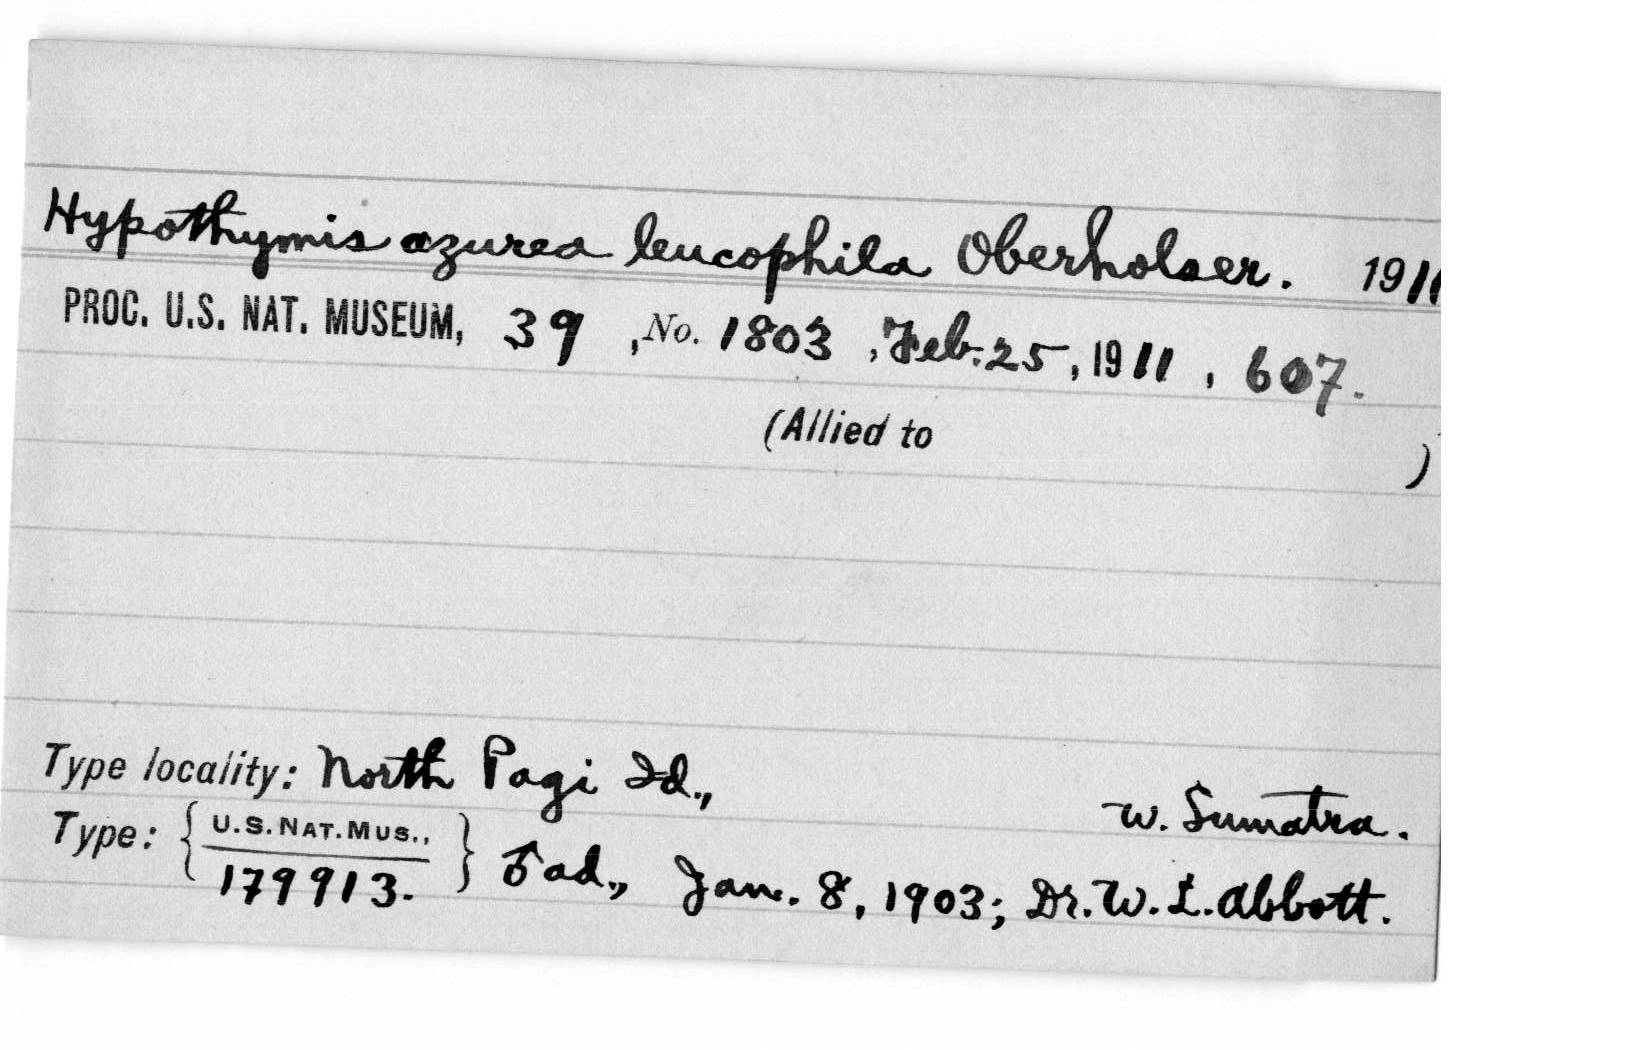 Hypothymis azurea leucophila Oberholser. 1911
PROC. U.S. NAT. MUSEUM, 39, No. 1803, Feb. 25, 1911, 607.
(Allied to )
Type locality: North Pagi Id., W. Sumatra.
Type: { U.S. NAT. MUS., 179913. } ♂ ad., Jan. 8, 1903; Dr. W. L. Abbott.